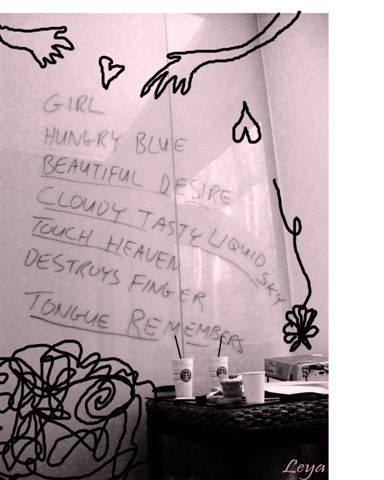 GIRL
HUNGRY BLUE
BEAUTIFUL DESIRE
CLOUDY TASTY LIQUID SKY
TOUCH HEAVEN
DESTROYS FINGER
TONGUE REMEMBERS
Leya